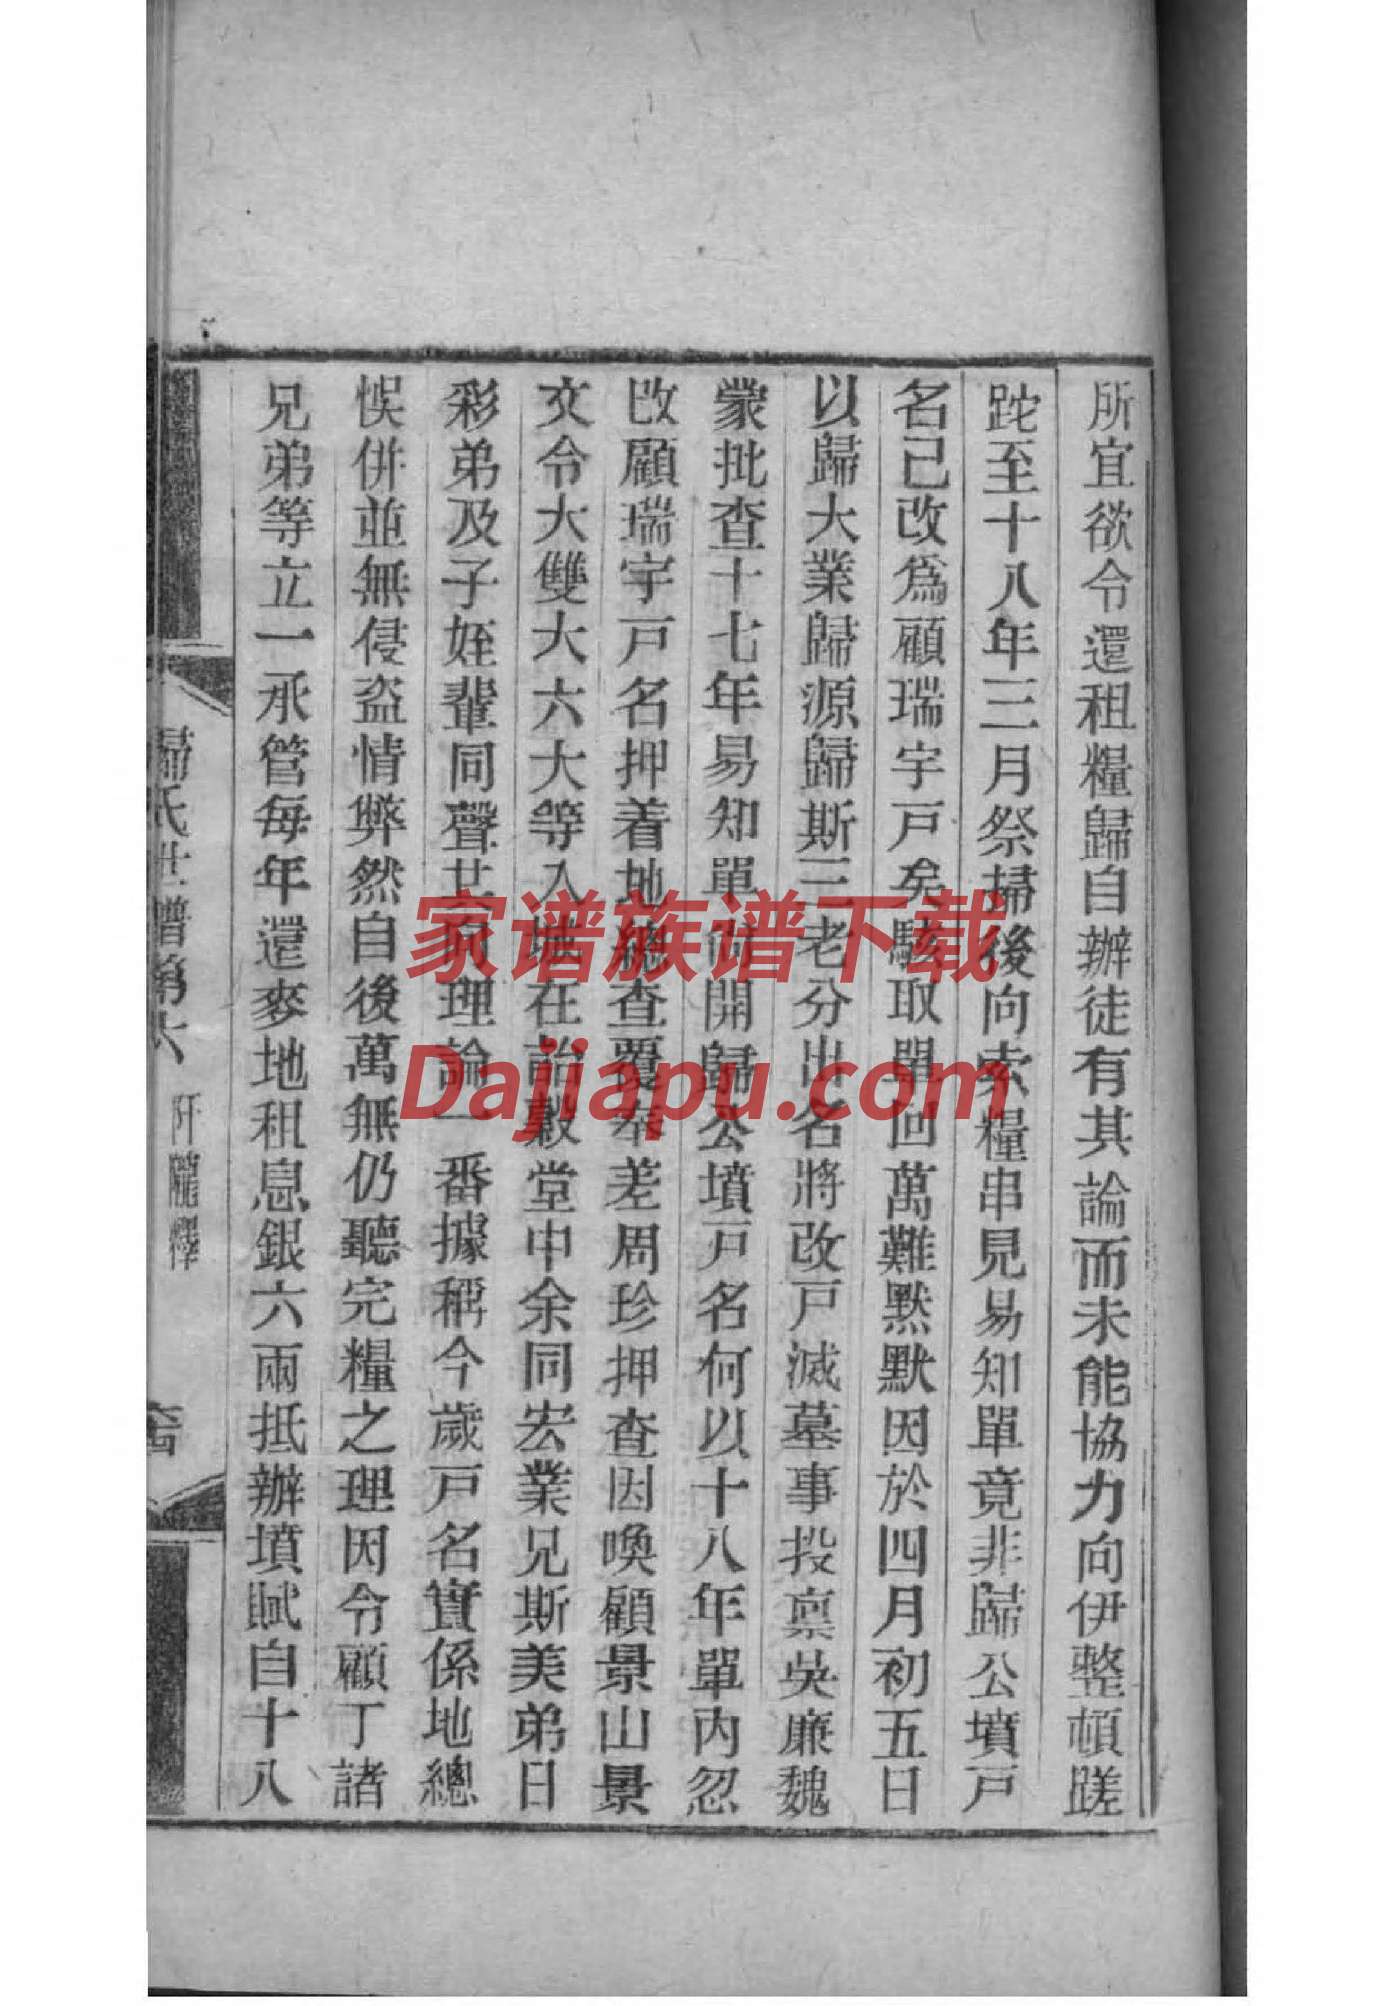 所宜欲令還租糧歸自辦徒有其論而未能協力向伊整頓蹉
跎至十八年三月祭掃後向索糧串見易知單竟非歸公墳戸
名已改爲顧瑞宇戸矣駭取單回萬難默默因於四月初五日
以歸大業歸源歸斯三老分出名將改戸滅墓事投稟吳廉魏
蒙批查十七年易知單尙開歸公墳戸名何以十八年單内忽
改顧瑞宇戸名押着地總查覆奉差周珍押查因喚顧景山景
文令大雙大六大等入城在詒穀堂中余同宏業兄斯美弟日
彩弟及子姪輩同聲廿
理論一番據稱今歲戸名實係地總
悞併並無侵盜情弊然自後萬無仍聽完糧之理因令顧丁諸
兄弟等立一承管每年還麥地租息銀六兩抵辦墳賦自十八
歸氏世譜第六
阡隴釋
家谱族谱下载
Dajiapu.com